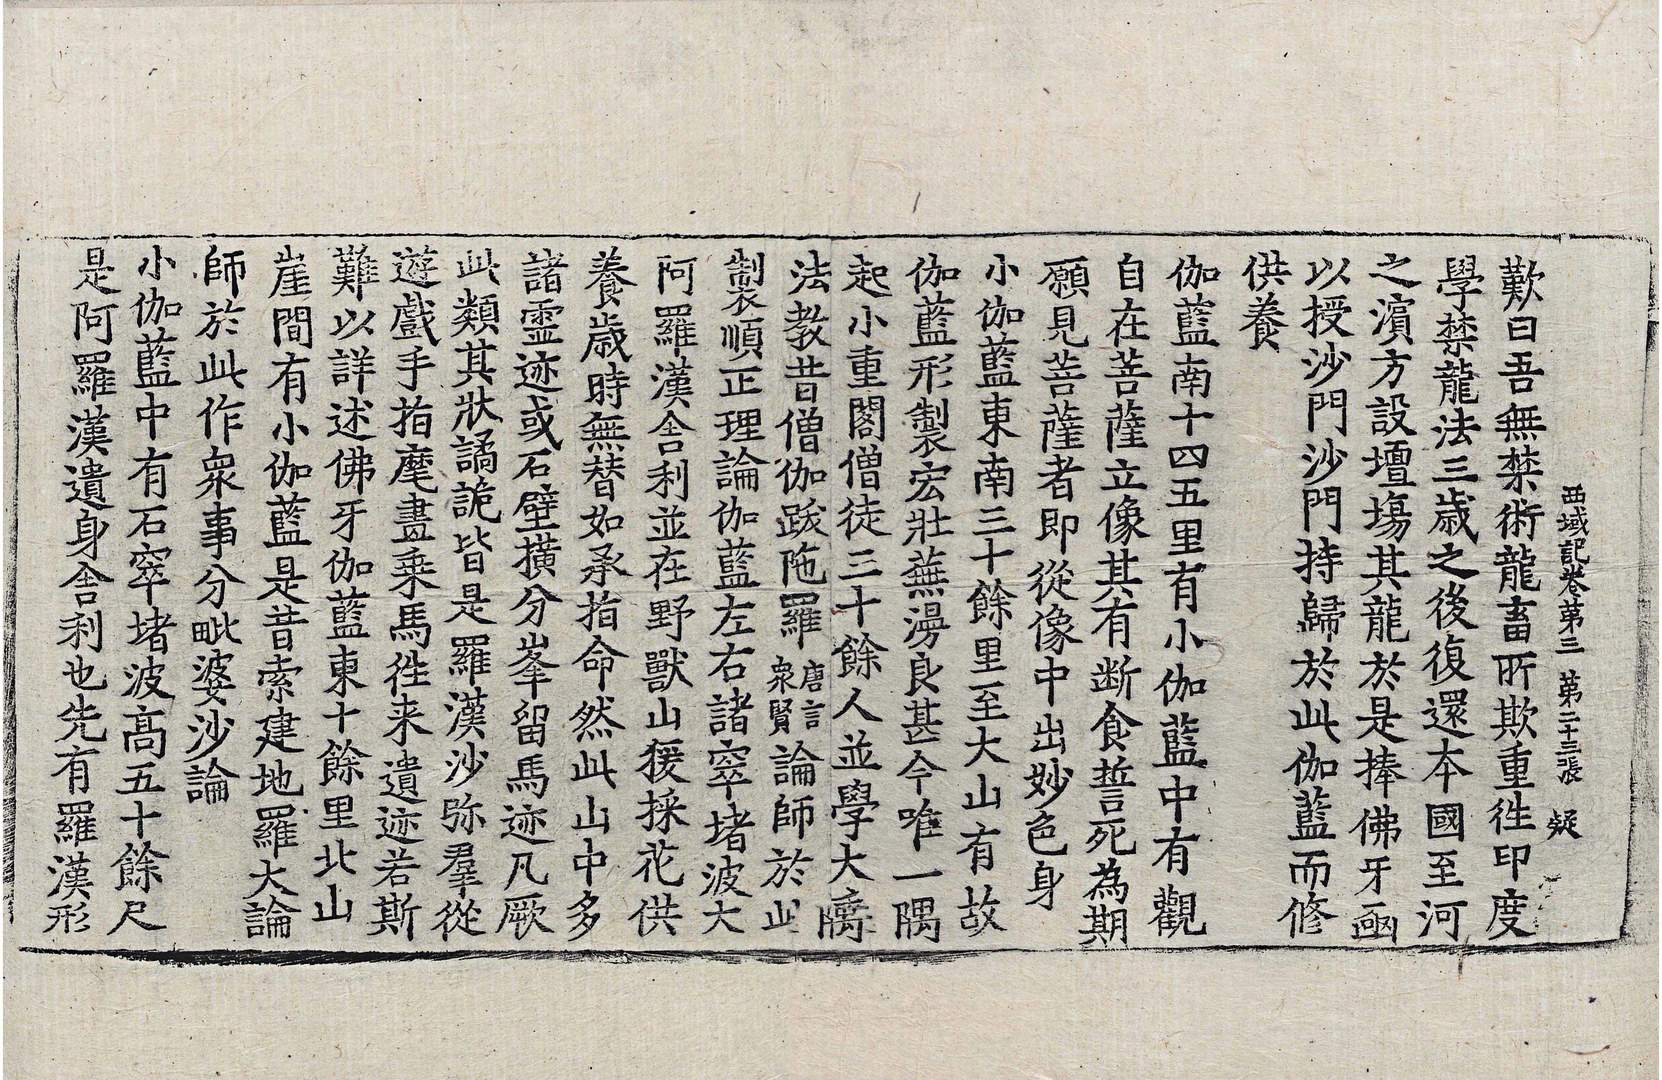 西域記卷第三 第二十三張 疑
歎曰吾無禁術龍畜所欺重往印度
學禁龍法三歲之後復還本國至河
之濱方設壇場其龍於是捧佛牙函
以授沙門沙門持歸於此伽藍而修
供養
伽藍南十四五里有小伽藍中有觀
自在菩薩立像其有斷食誓死為期
願見菩薩者即從像中出妙色身
小伽藍東南三十餘里至大山有故
伽藍形製宏壯蕪漫良甚今唯一隅
起小重閣僧徒三十餘人並學大乘
法教昔僧伽跋陁羅唐言衆賢論師於此
製順正理論伽藍左右諸窣堵波大
阿羅漢舍利並在野獸山猨採花供
養歲時無替如承指命然此山中多
諸靈迹或石壁橫分峯留馬迹凡厥
此類其狀譎詭皆是羅漢沙弥羣從
遊戲手指麾畫乘馬往来遺迹若斯
難以詳述佛牙伽藍東十餘里北山
崖間有小伽藍是昔索建地羅大論
師於此作衆事分毗婆沙論
小伽藍中有石窣堵波高五十餘尺
是阿羅漢遺身舍利也先有羅漢形